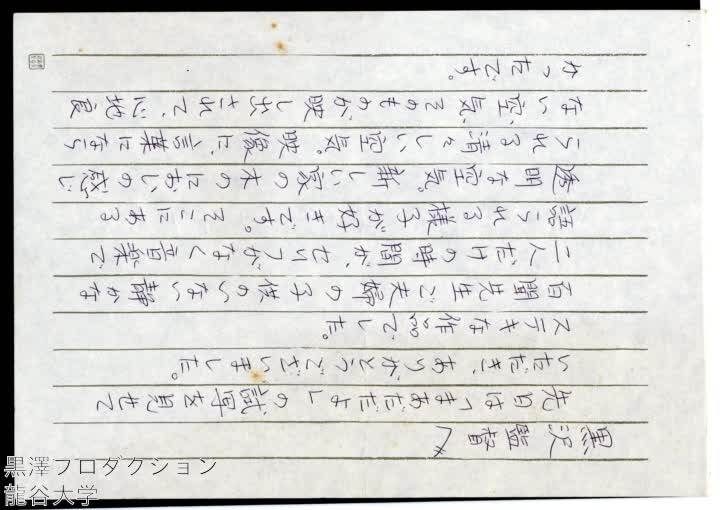 黒沢監督へ
先日は「まあだだよ」の試写を見せて
いただき、ありがとうございました。
ステキな作品でした。
百閒先生ご夫婦の子供のいない静かな
二人だけの時間が、セリフがなく音楽で
語られる様子が好きです。そこにある
透明な空気。新しい家の木のにおいの感じ
られる清々しい空気。映像に、言葉になら
ない空気、そのものが映し出されて、心地良
かったです。
黒澤プロダクション
龍谷大学